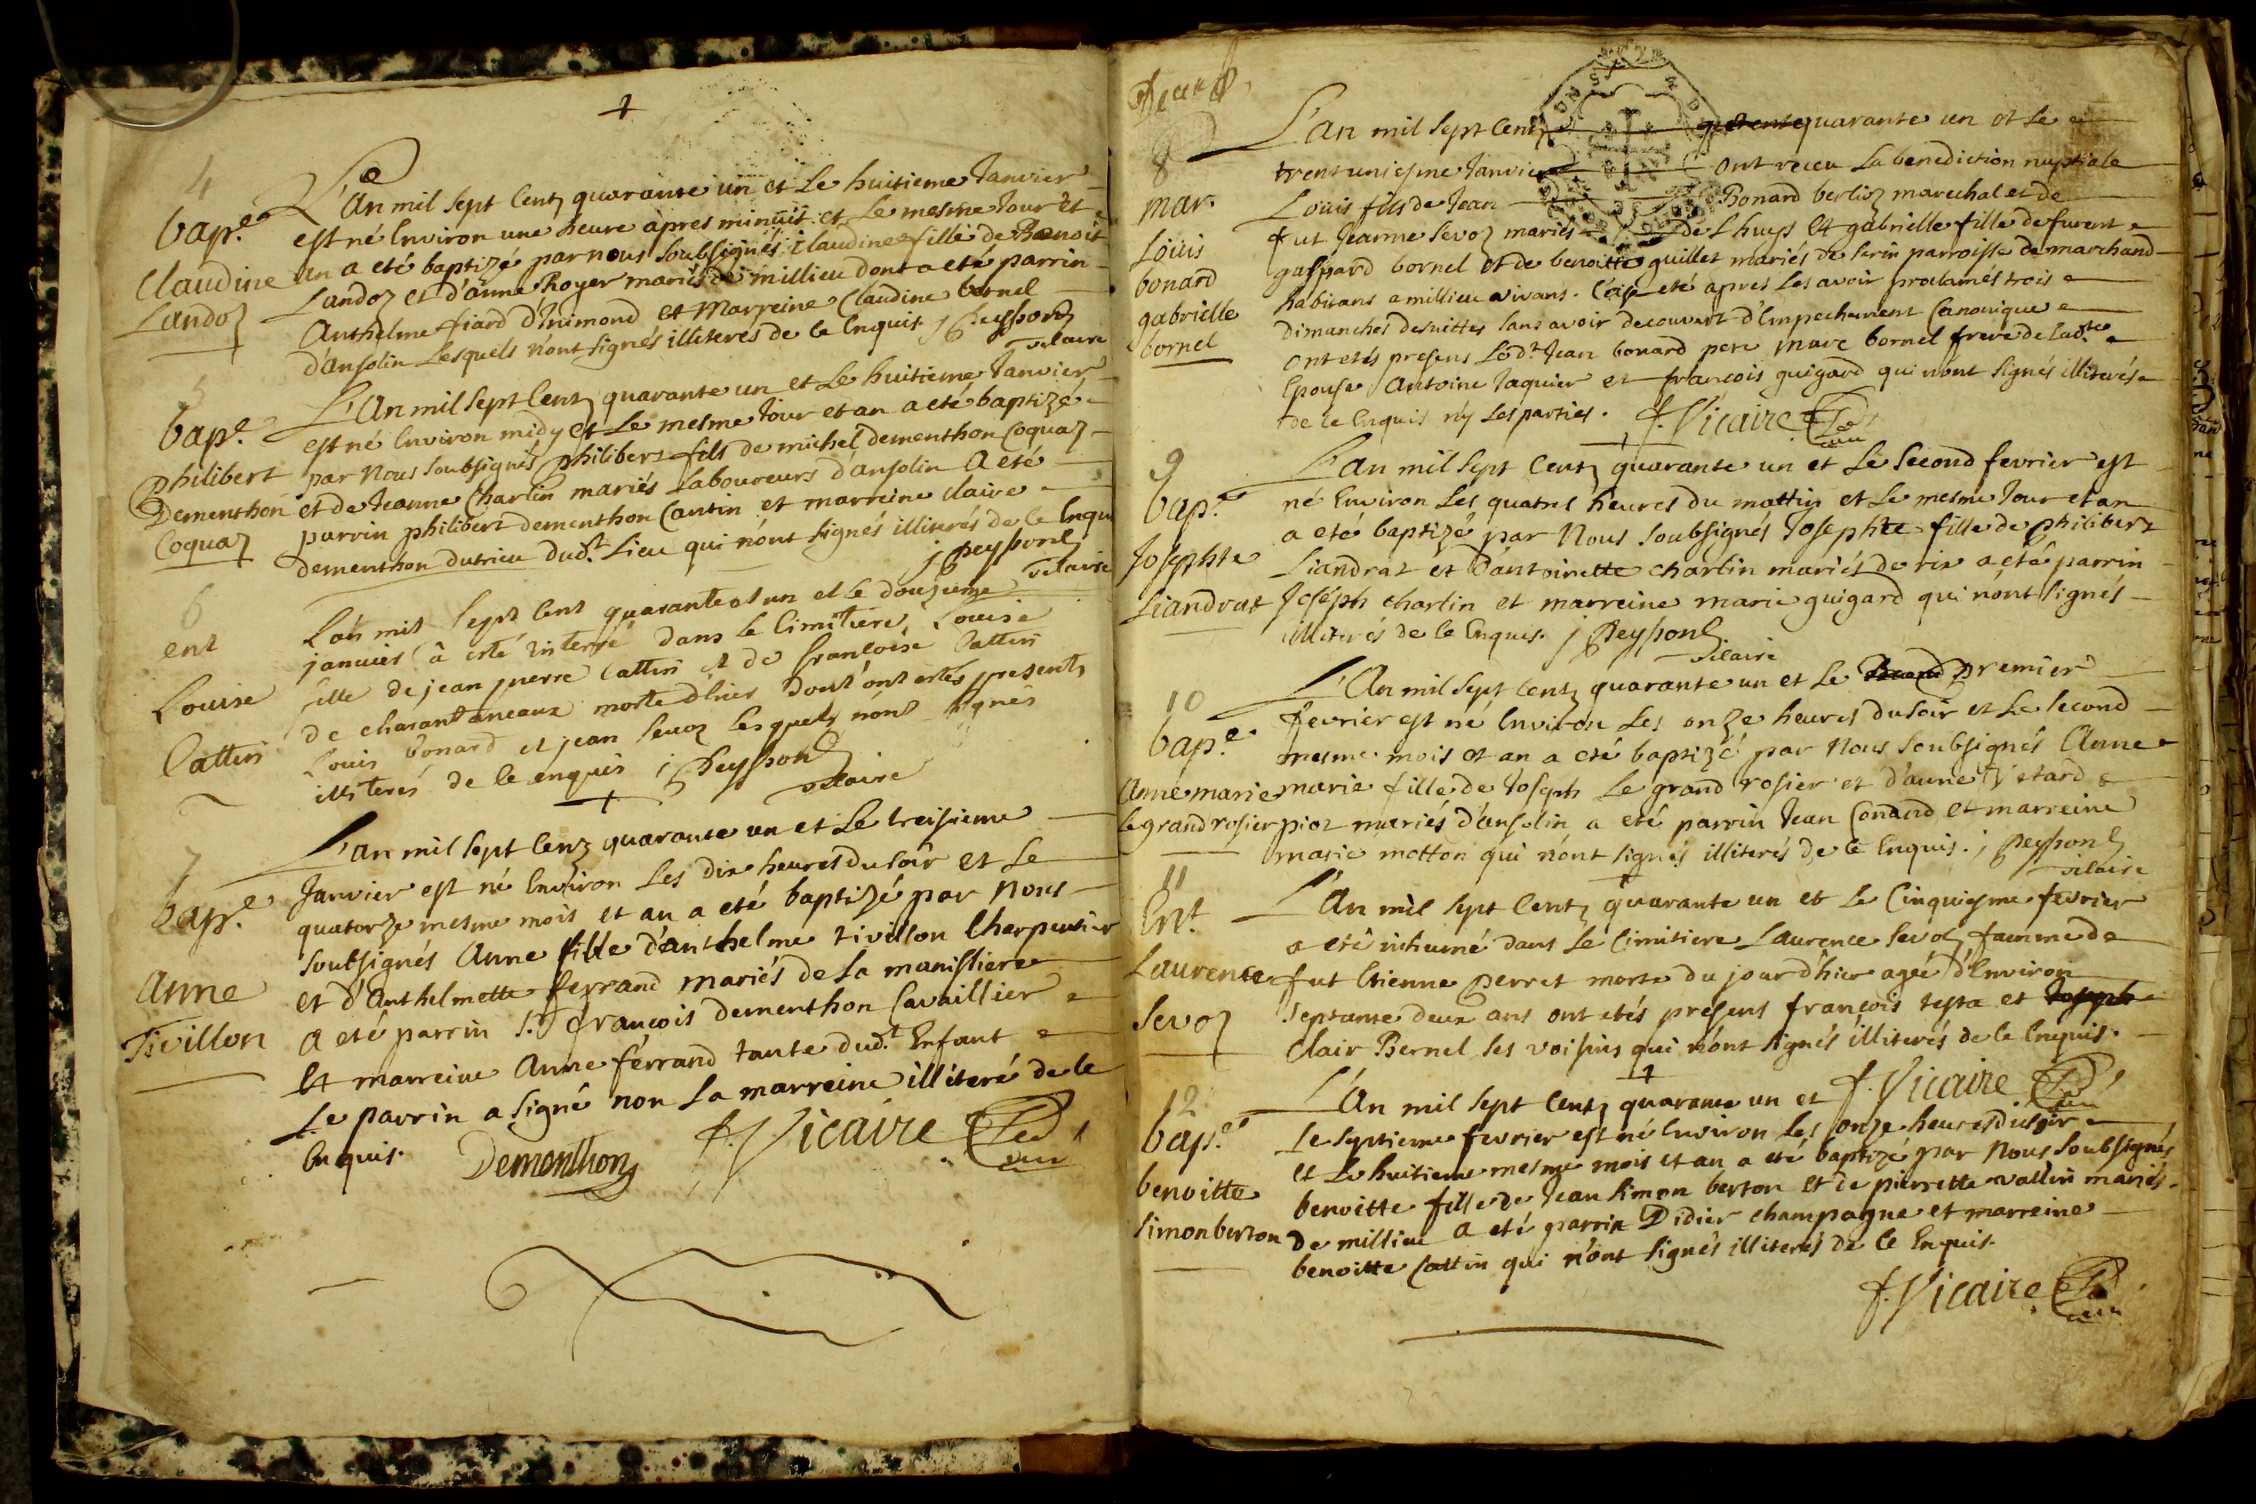 4
bap.e
Claudine
Landoz
L'An mil sept centz quarante un et le huitieme Janvier
est né Environ une heure apres minuit et le mesme Jour et
an a eté baptizé par nous soubsignés Claudine fille de Benoit
Landoz et d'anne Royer mariés de millieu dont a eté parrin
Anthelme fiard d'Inimond et Marreine Claudine bornel
d'ansolin Lesquels n'ont signés illiterés de ce Enquit j Peysson
vicaire
5
bap.e
Philibert
Dementhon
Coquaz
L'An mil sept centz quarante un et le huitieme Janvier
est né Environ midy et le mesme Jour et an a eté baptizé
par Nous soubsignés philibert fils de michel dementhon Coquaz
et de Jeanne Charlin mariés Laboureurs d'ansolin a eté
parrin philibert dementhon Cantin et marreine claire
dementhon dutrieu dud.t Lieu qui n'ont signés illiterés de ce Enquis
j Peysson
vicaire
6
ent
Louise
Cattin
L'an mil sept cent quarante et un et le douzieme
janvier à esté interré dans le Cimitiere, Louise
fille de jean pierre Cattin et de françoise Cattin
de charantaneaux morte d'hier dont ont estés presents
Louis bonard et jean sevoz lesquels n'ont signés
illiterés de ce enquis j Peysson
vicaire
7
bap.e
Anne
Tivillon
L'an mil sept centz quarante un et Le treisieme
Janvier est né Environ Les dix heures du soir et Le
quatorze mesme mois et an a eté baptizé par Nous
soubsignés Anne fille d'anthelme tivillon Charpentier
et d'Anthelmette ferrand mariés de la manissiere
a eté parrin S.r françois dementhon Cavaillier
Et marreine Anne ferrand tante dud.t Enfant
Le parrin a signé non La marreine illiteré de ce
Enquis.
Dementhon
f. Vicaire
8
mar.
Loüis
bonard
gabrielle
bornel
L'An mil sept centz quarante un et Le
trentuniesme Janvier ont receu La benediction nuptiale
Loüis fils de Jean Bonard berlioz marechal et de
fut Jeanne Sevoz mariés de Lhuys Et gabrielle fille de furent
gaspard bornel et de benoitte guillet mariés de serin parroisse de marchand
habitans a millieu vivans. C'a eté apres Les avoir proclamés trois
dimanches desuittes sans avoir decouvert d'Empechement Canonique
ont etés presens Led.t Jean bonard pere marc bornel frere de Lad.te
Epouse Antoine Jaquier et françois guigard qui n'ont signés illiterés
de ce Enquis n'y Les parties. f. Vicaire
9
bap.e
Josephte
Liandrat
L'an mil sept centz quarante un et Le second fevrier est
né Environ Les quatres heures du mattin et Le mesme Jour et an
a eté baptizé par Nous soubsignés Josephte fille de philibert
Liandrat et d'antoinette charlin mariés de rix a eté parrin
Joseph charlin et marreine marie guigard qui n'ont signés
illiterés de ce Enquis. j Peysson
vicaire
10
bap.e
Anne marie
le grand rosier
L'An mil sept centz quarante un et Le premier
fevrier est né Environ Les onze heures du soir et Le second
mesme mois et an a eté baptizé par Nous soubsignés Anne
marie fille de Joseph Le grand rosier et d'anne
piot mariés d'ansolin a eté parrin Jean Conand et marreine
marie motton qui n'ont signés illiterés de ce Enquis. j Peysson
vicaire
11
Ent.
Laurence
Sevoz
L'An mil sept centz quarante un et Le Cinquiesme fevrier
a eté inhumé dans Le Cimitiere Laurence sevoz famme de
fut Etienne perret morte du jour d'hier ageé d'Environ
septante deux ans ont etés presens françois testa et Joseph
Clair Bernel ses voisins qui n'ont signés illiterés de ce Enquis.
f. Vicaire
12
bap.e
benoitte
simon berton
L'An mil sept centz quarante un et
Le septieme fevrier est né Environ Les onze heures du soir
et Le huitieme mesme mois et an a eté baptizé par Nous soubsignés
benoitte fille de Jean simon berton et de pierrette vallin mariés
de millieu a eté parrin Didier champagne et marreine
benoitte Cattin qui n'ont signés illiterés de ce Enquis.
f. Vicaire